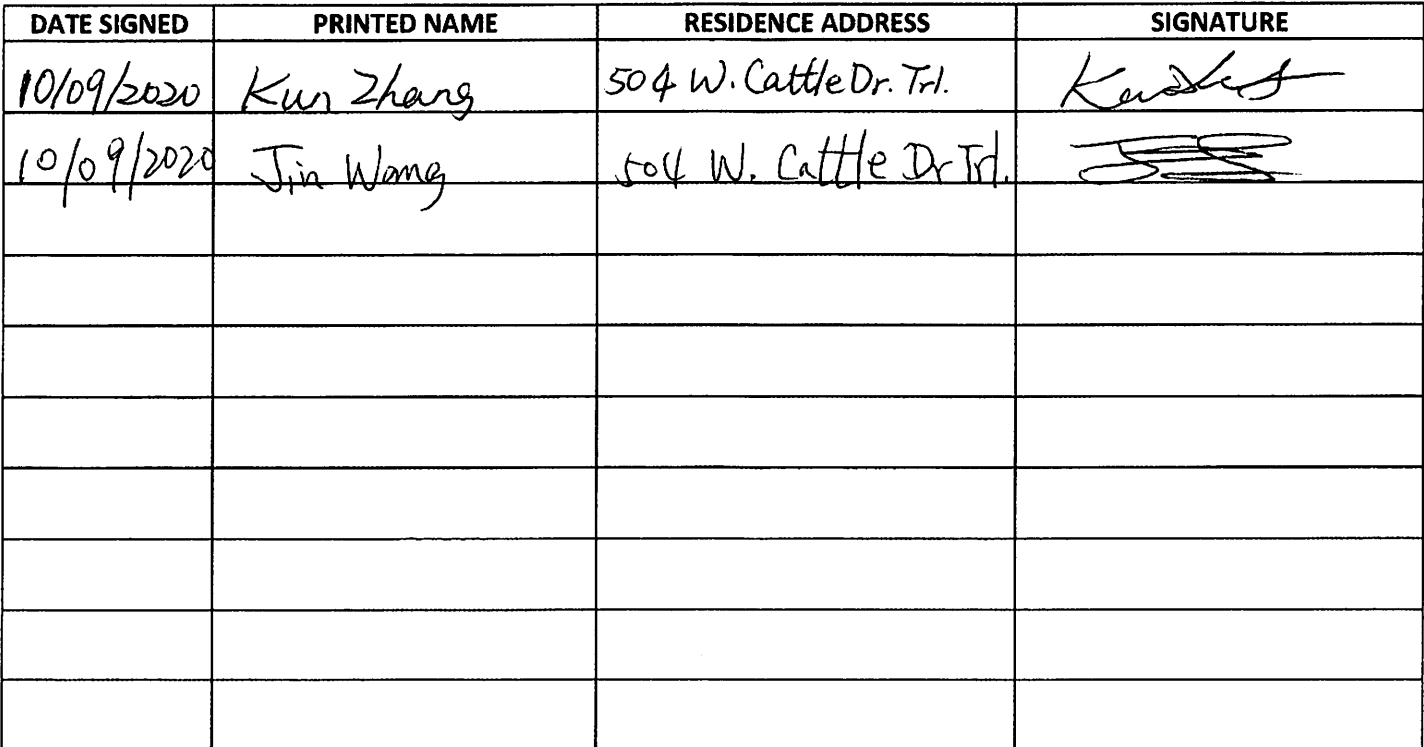 DATE SIGNED PRINTED NAME RESIDENCE ADDRESS SIGNATURE
10/09/2020 Kun Zhang 504 W. Cattle Dr. Trl.
10/09/2020 Jin Wang 504 W. Cattle Dr Trl.